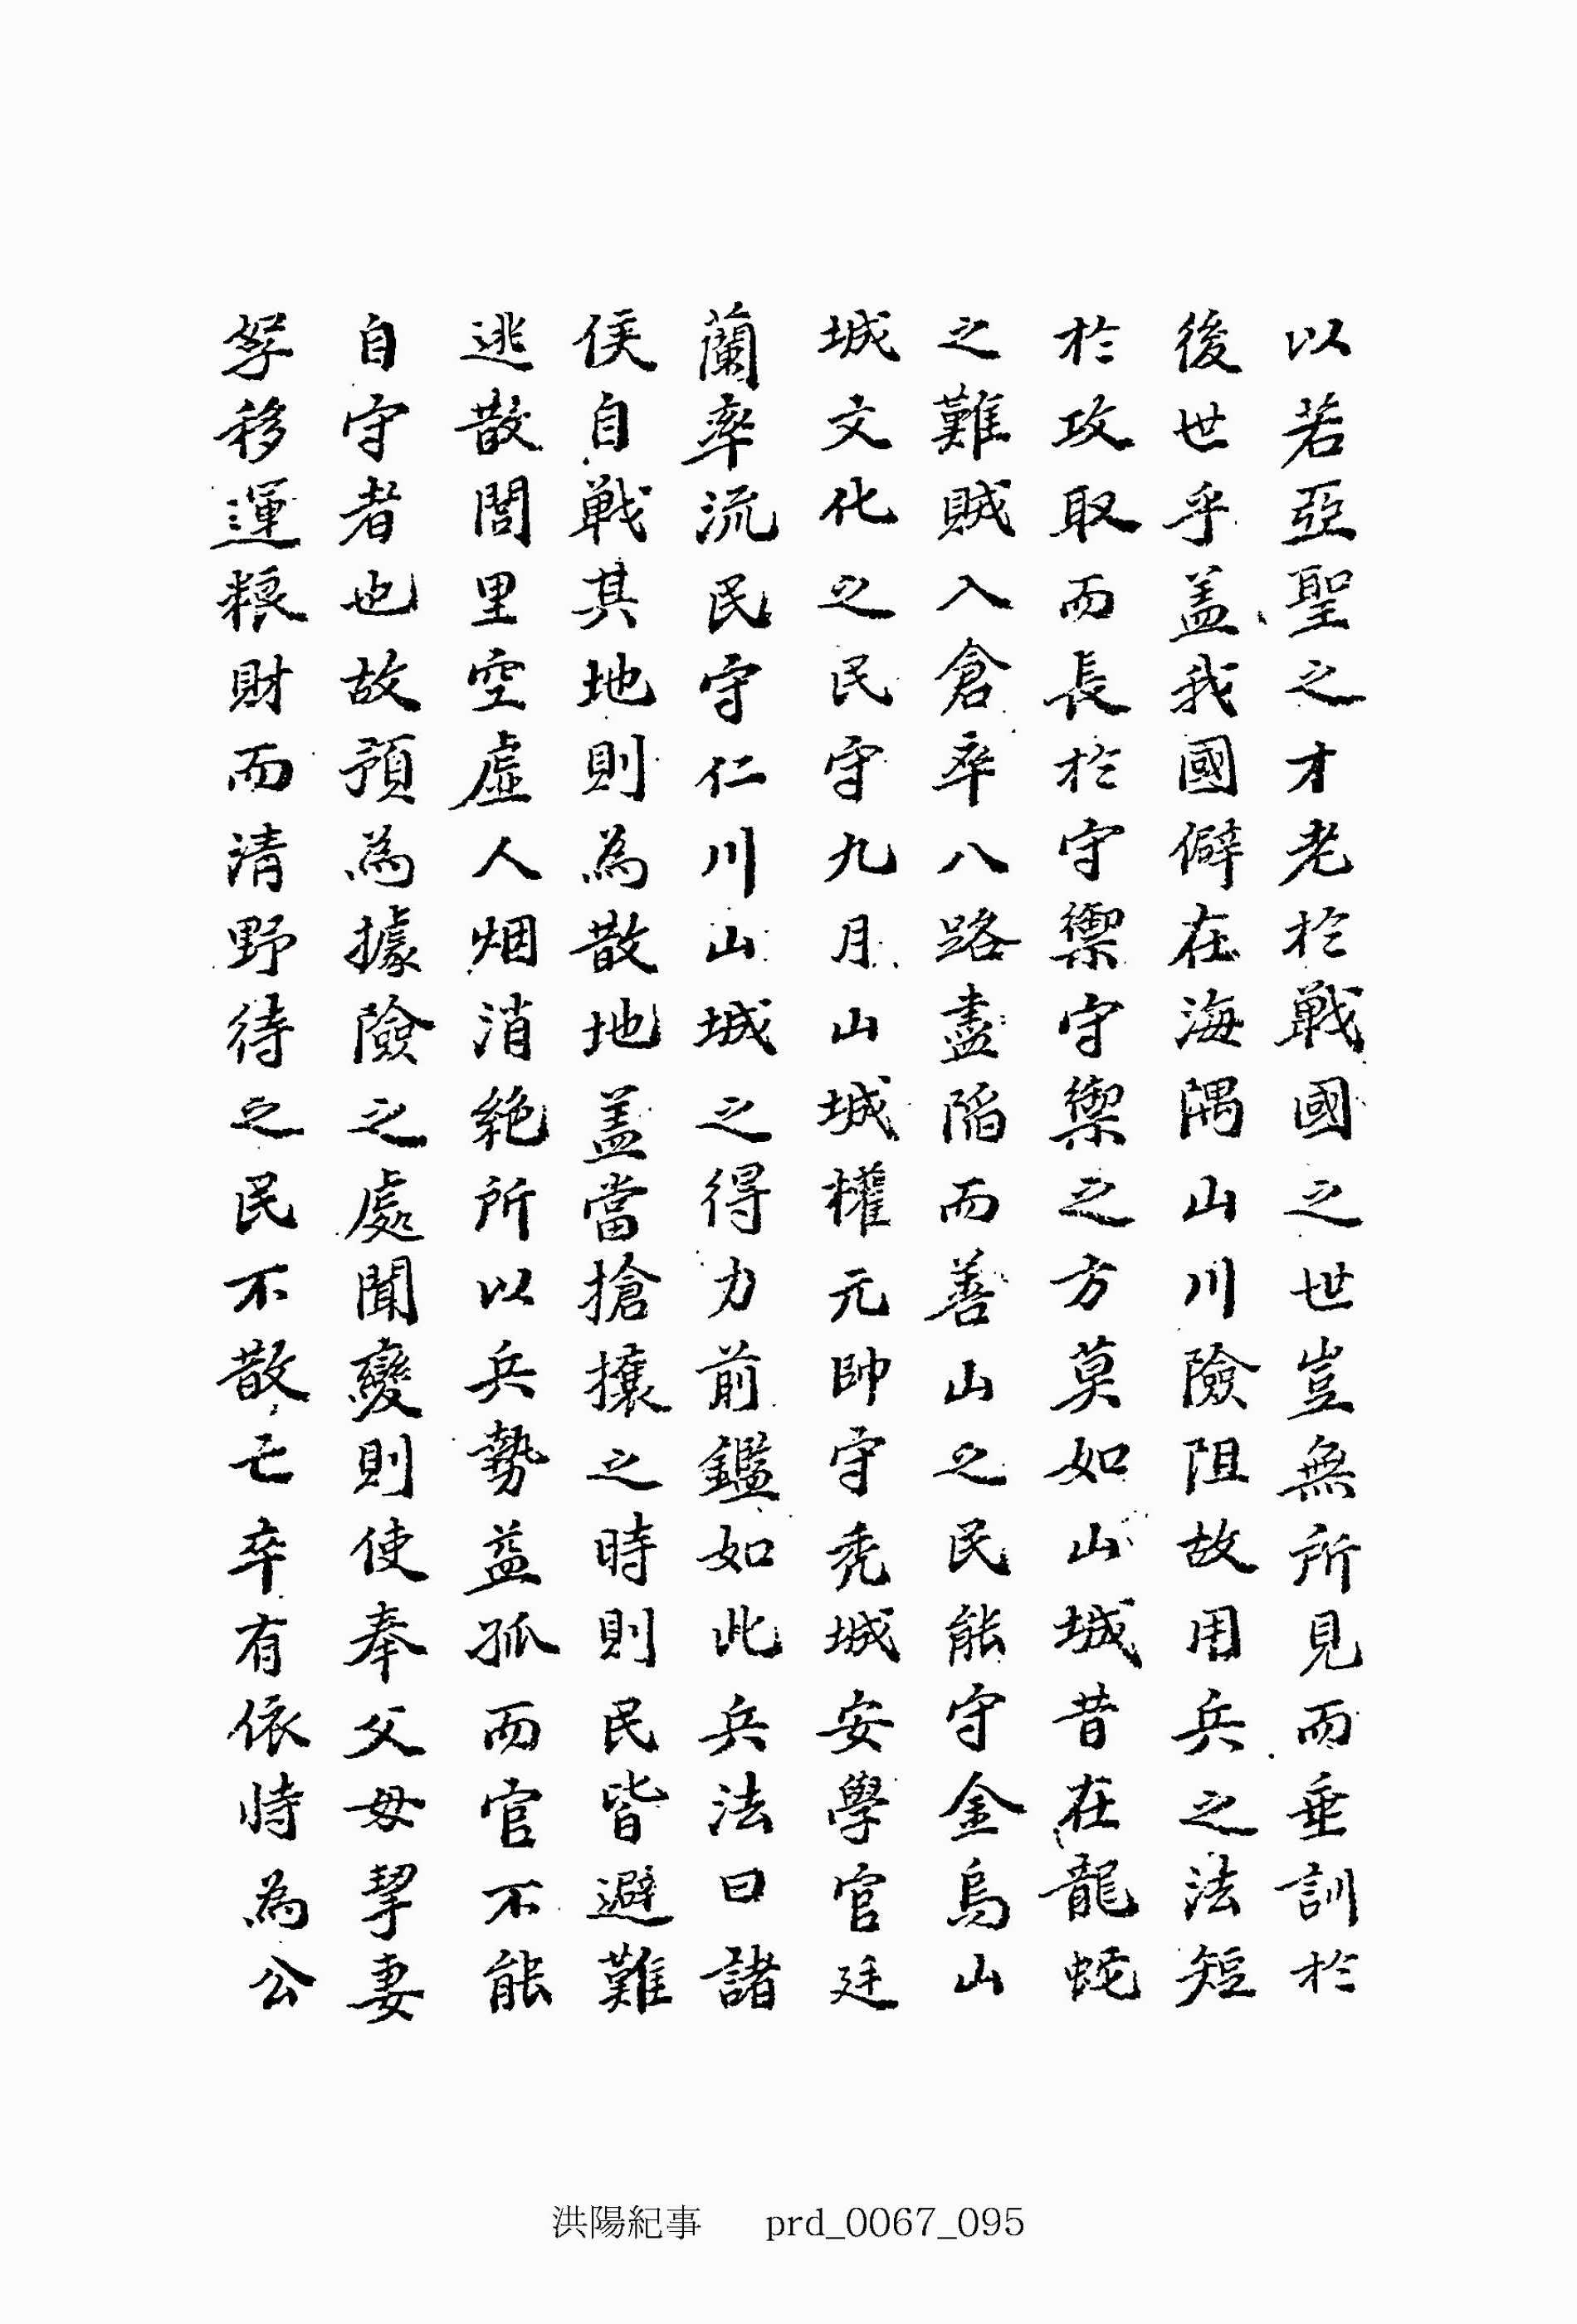 以若亞聖之才老於戰國之世豈無所見而垂訓於
後世乎盖我國僻在海隅山川險阻故用兵之法短
於攻取而長於守禦守禦之方莫如山城昔在龍蛇
之難賊入倉卒八路盡陷而善山之民能守金烏山
城文化之民守九月山城權元帥守禿城安學官廷
蘭率流民守仁川山城之得力前鑑如此兵法曰諸
侯自戰其地則為散地盖當搶攘之時則民皆避難
逃散閭里空虛人烟消絶所以兵勢益孤而官不能
自守者也故預為據險之處聞變則使奉父母挈妻
孥移運粮財而清野待之民不散亡卒有依恃為公
洪陽紀事 prd_0067_095